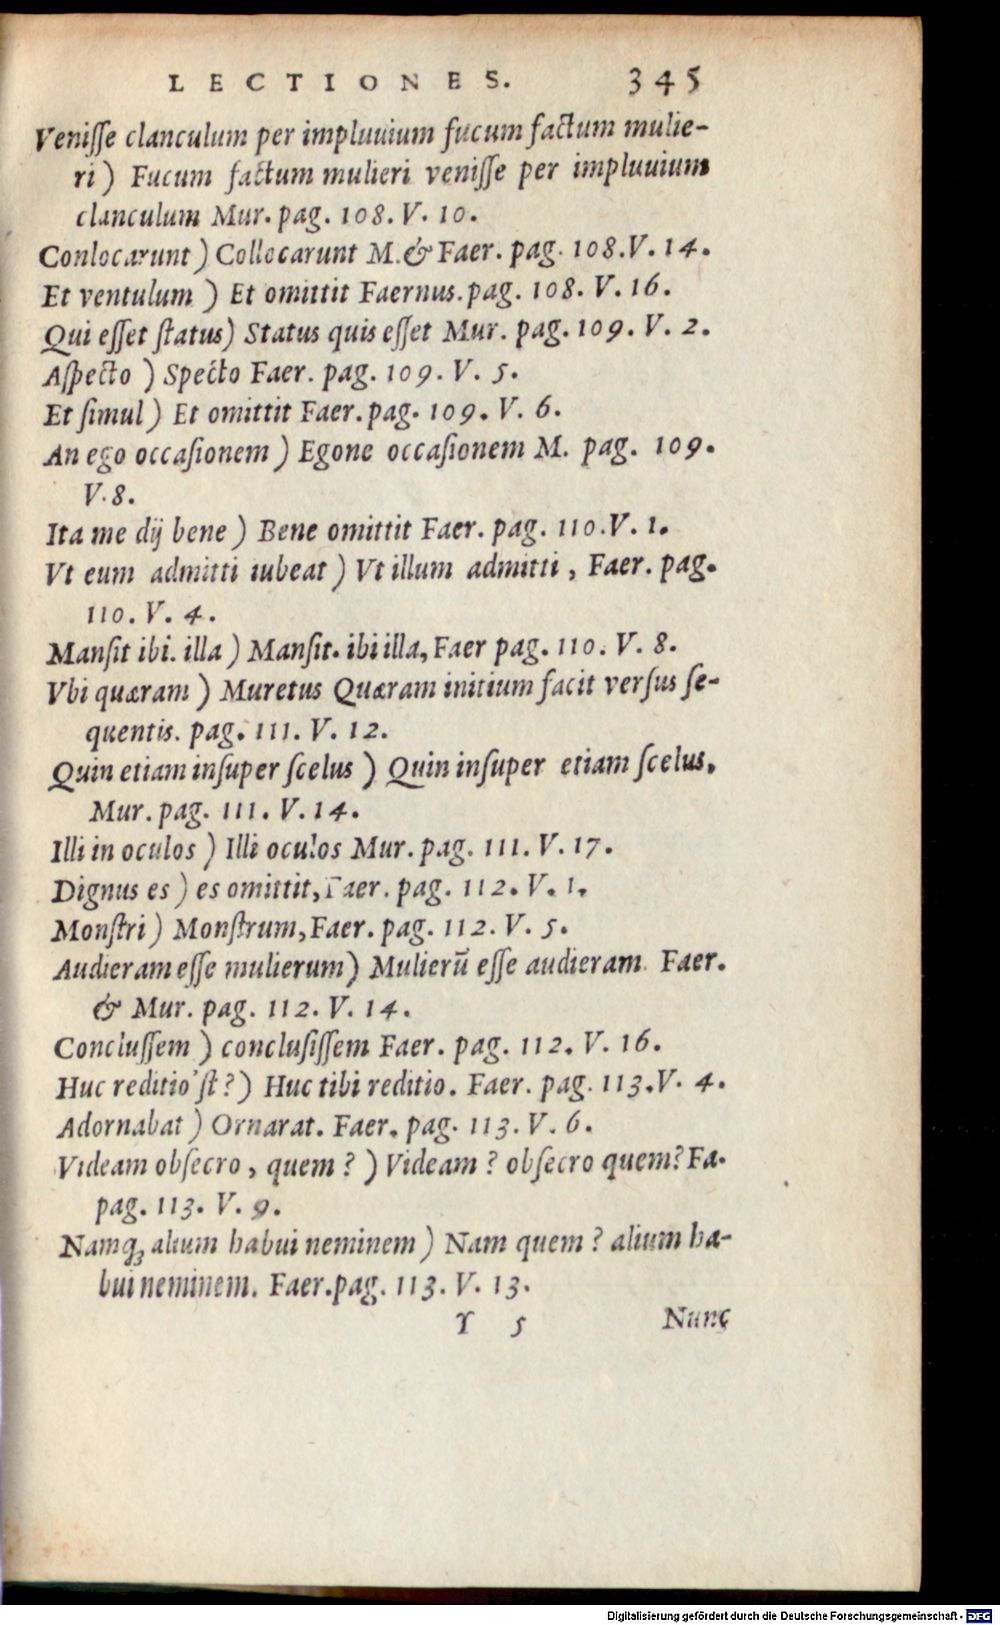 LECTIONES. 345
Veniſſe clanculum per impluuium fucum factum mulie-
ri) Fucum factum mulieri veniſſe per impluuium
clanculum Mur. pag. 108. V. 10.
Conlocarunt) Collocarunt M. & Faer. pag. 108. V. 14.
Et ventulum) Et omittit Faernus. pag. 108. V. 16.
Qui eſſet ſtatus) Status quis eſſet Mur. pag. 109. V. 2.
Aſpecto) Specto Faer. pag. 109. V. 5.
Et ſimul) Et omittit Faer. pag. 109. V. 6.
An ego occaſionem) Egone occaſionem M. pag. 109.
V. 8.
Ita me dij bene) Bene omittit Faer. pag. 110. V. 1.
Vt eum admitti iubeat) Vt illum admitti, Faer. pag.
110. V. 4.
Manſit ibi. illa) Manſit. ibi illa, Faer pag. 110. V. 8.
Vbi quæram) Muretus Quæram initium facit verſus ſe-
quentis. pag. 111. V. 12.
Quin etiam inſuper ſcelus) Quin inſuper etiam ſcelus,
Mur. pag. 111. V. 14.
Illi in oculos) Illi oculos Mur. pag. 111. V. 17.
Dignus es) es omittit, Faer. pag. 112. V. 1.
Monſtri) Monſtrum, Faer. pag. 112. V. 5.
Audieram eſſe mulierum) Mulierū eſſe audieram Faer.
& Mur. pag. 112. V. 14.
Concluſſem) concluſiſſem Faer. pag. 112. V. 16.
Huc reditio'ſt?) Huc tibi reditio. Faer. pag. 113. V. 4.
Adornabat) Ornarat. Faer. pag. 113. V. 6.
Videam obſecro, quem?) Videam? obſecro quem? Fa.
pag. 113. V. 9.
Namq; alium habui neminem) Nam quem? alium ha-
bui neminem. Faer. pag. 113. V. 13.
Y 5 Nunc
Digitalisierung gefördert durch die Deutsche Forschungsgemeinschaft - DFG